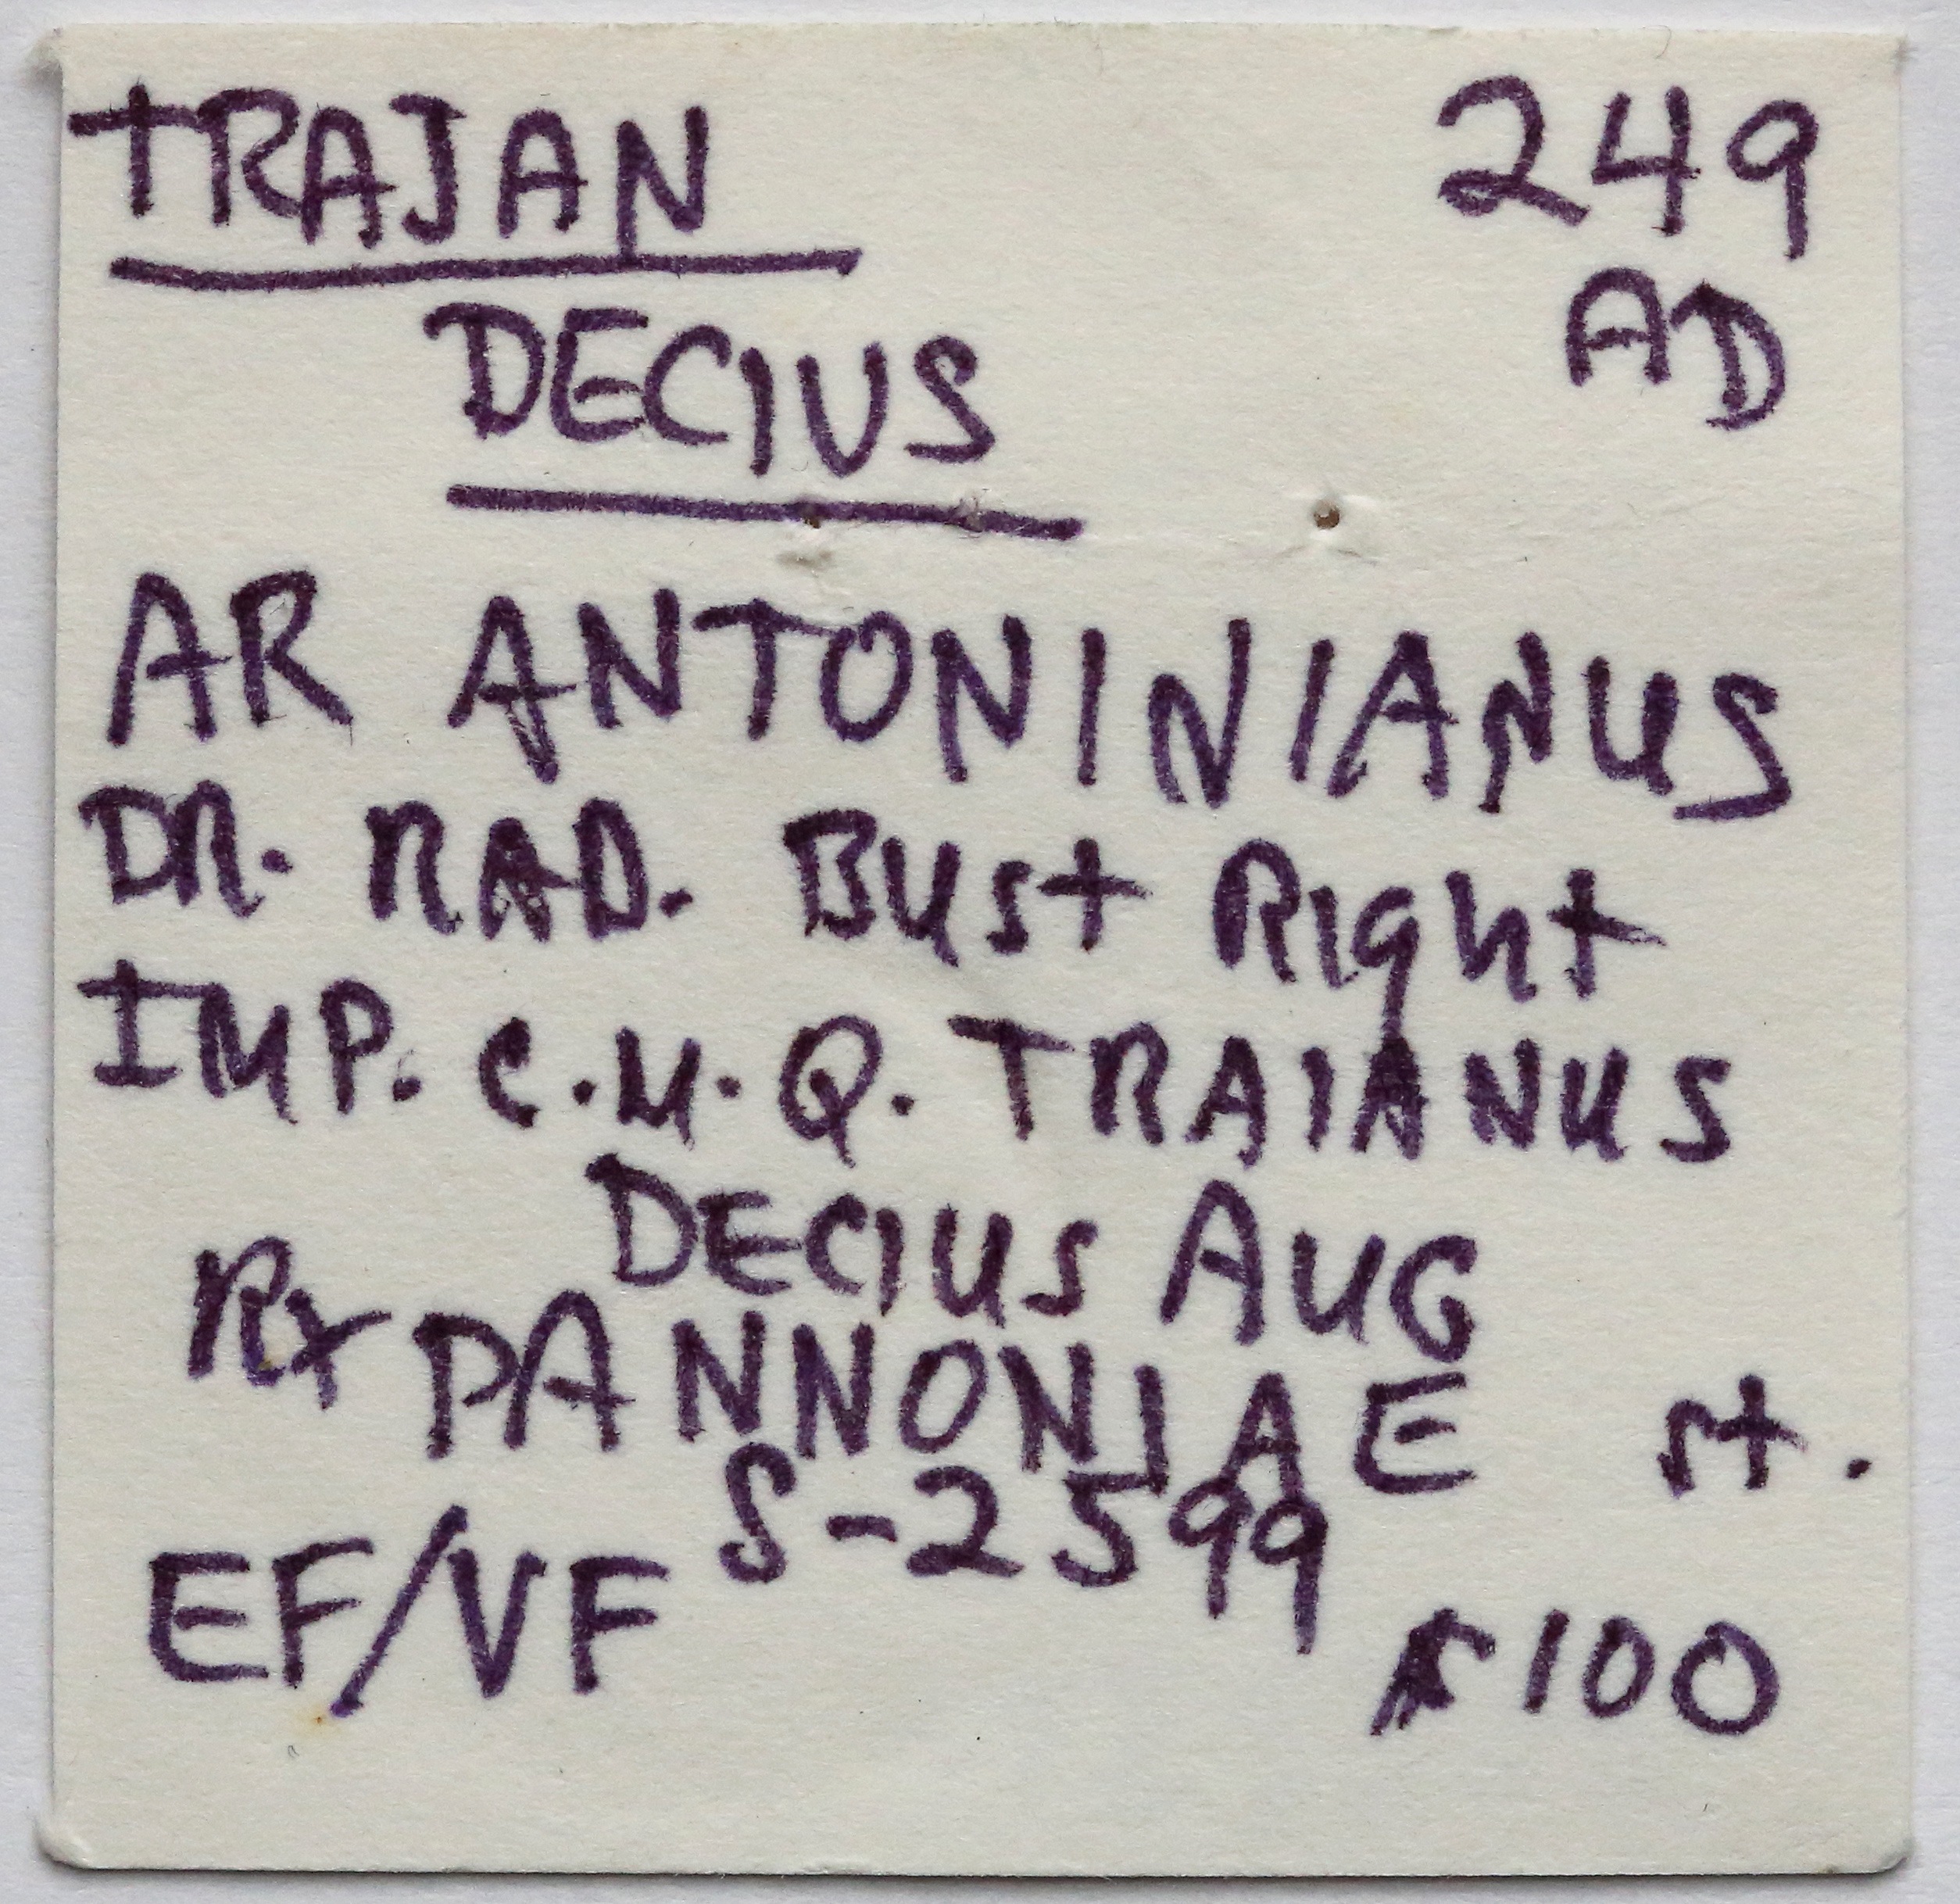 TRAJAN 249
DECIUS AD
AR ANTONINIANUS
DR. RAD. Bust Right
IMP. C.M.Q. TRAIANUS
DECIUS AUG
Rx PANNONIAE st.
S-2599
EF/VF $100